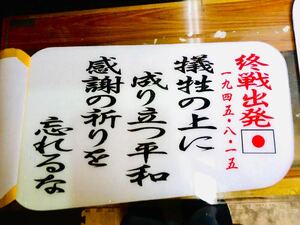 終戦出発
一九四五・八・一五
犠牲の上に
成り立つ平和
感謝の祈りを
忘れるな